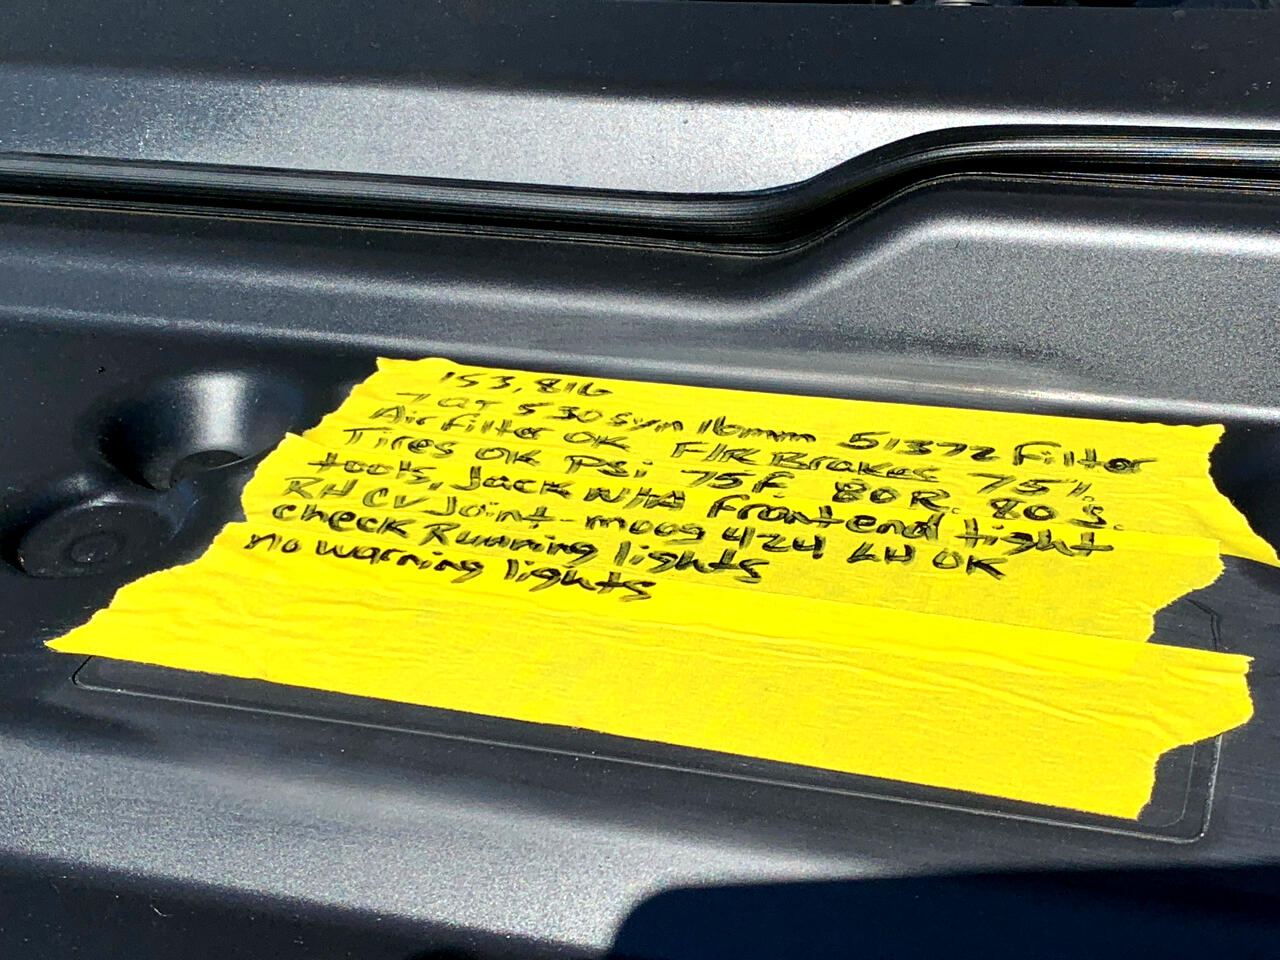 153,816
7 QT 530 Syn 16mm 51372 Filter
Air Filter OK F/R Brakes 75%
Tires OK PSi 75F 80R 80 S.
tools, Jack N/A Front end tight
RH CV Joint - moog 424 LH OK
check Running lights
no warning lights